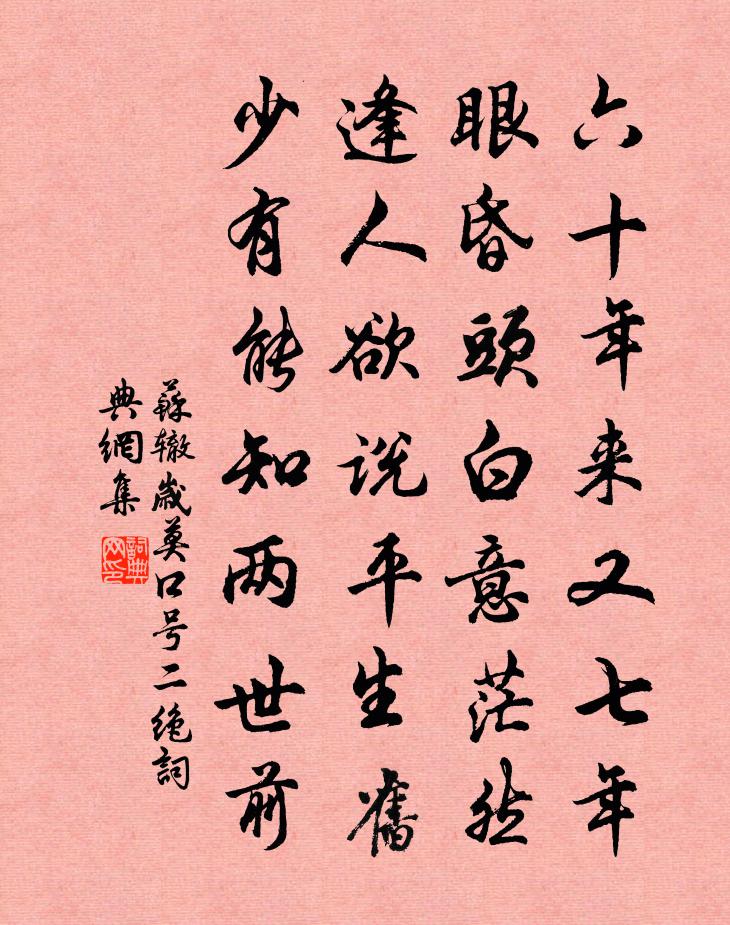 六十年来又七年
眼昏頭白意茫然
逢人欲说平生舊
少有能知两世前
蘇辙歲莫口号二绝詞
典網集
詞典
网印